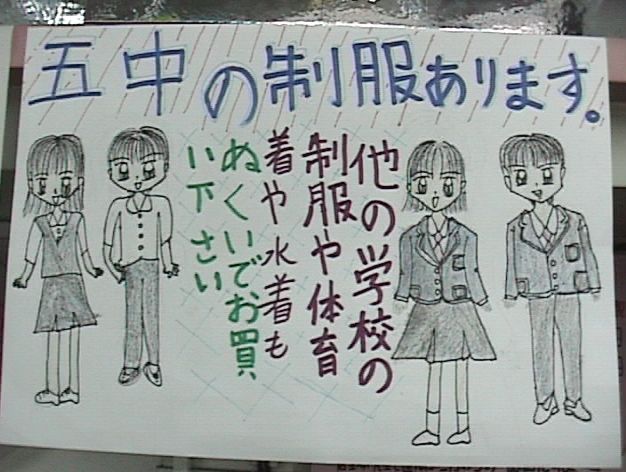 五中の制服あります。
他の学校の
制服や体育
着や水着も
ぬくいでお買
い下さい